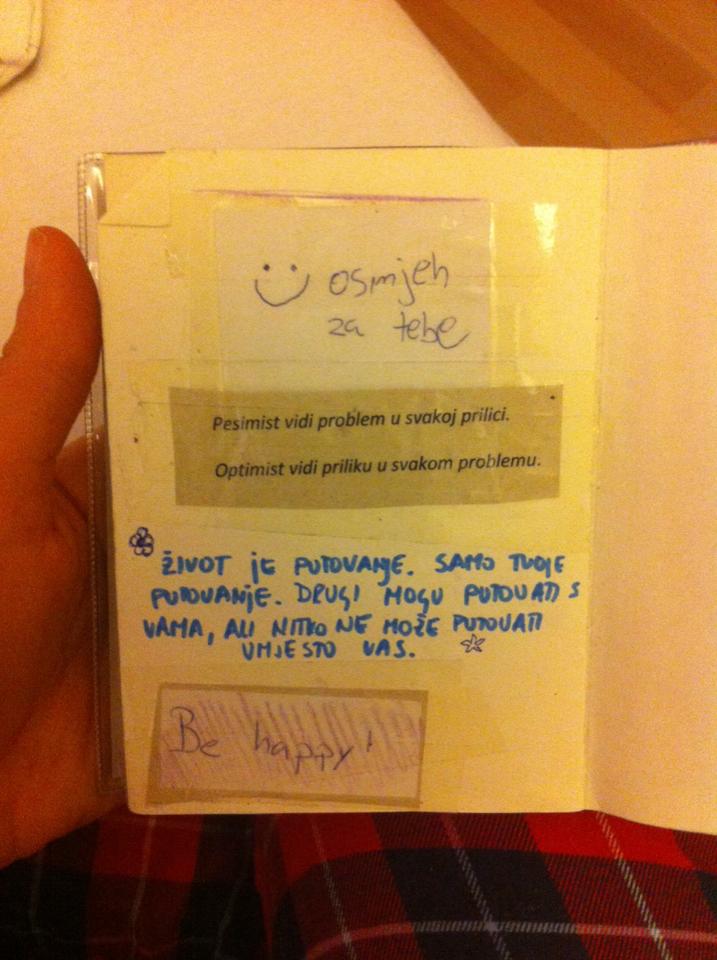 osmjeh
za tebe
Pesimist vidi problem u svakoj prilici.
Optimist vidi priliku u svakom problemu.
ŽIVOT jE PUTOVANJE. SAMO TVOJE
PUTOVANjE. DRUGI MOGU PUTOVATI S
VAMA, ALI NITKO NE MOŽE PUTOVATI
UMJESTO VAS.
Be happy!